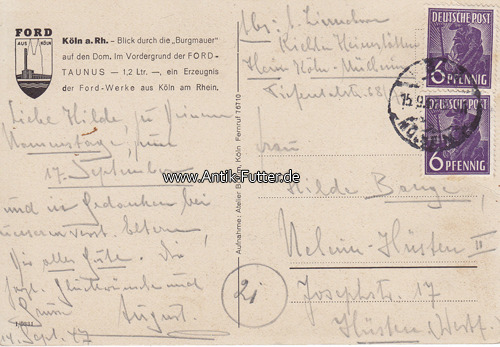 FORD
AUS KÖLN
Köln a. Rh. – Blick durch die „Burgmauer"
auf den Dom. Im Vordergrund der FORD-
TAUNUS — 1,2 Ltr. —, ein Erzeugnis
der Ford-Werke aus Köln am Rhein.
Liebe Hilde, zu Deinem
Namenstage, zum
17. September
und in Gedanken bei
unseren verst. Eltern,
Dir alles Gute. Die
herzl. Glückwünsche und
Grüße August.
14. Sept. 47
Köln Fernruf 76710
Aufnahme: Atelier
www.Antik-Futter.de
Abs:
Köln-Mülheim
68
DEUTSCHE POST
6 PFENNIG
DEUTSCHE POST
6 PFENNIG
15.9.
Frau
Hilde Bange,
Neheim-Hüsten II
Josephstr. 17
Hüsten (Westf.)